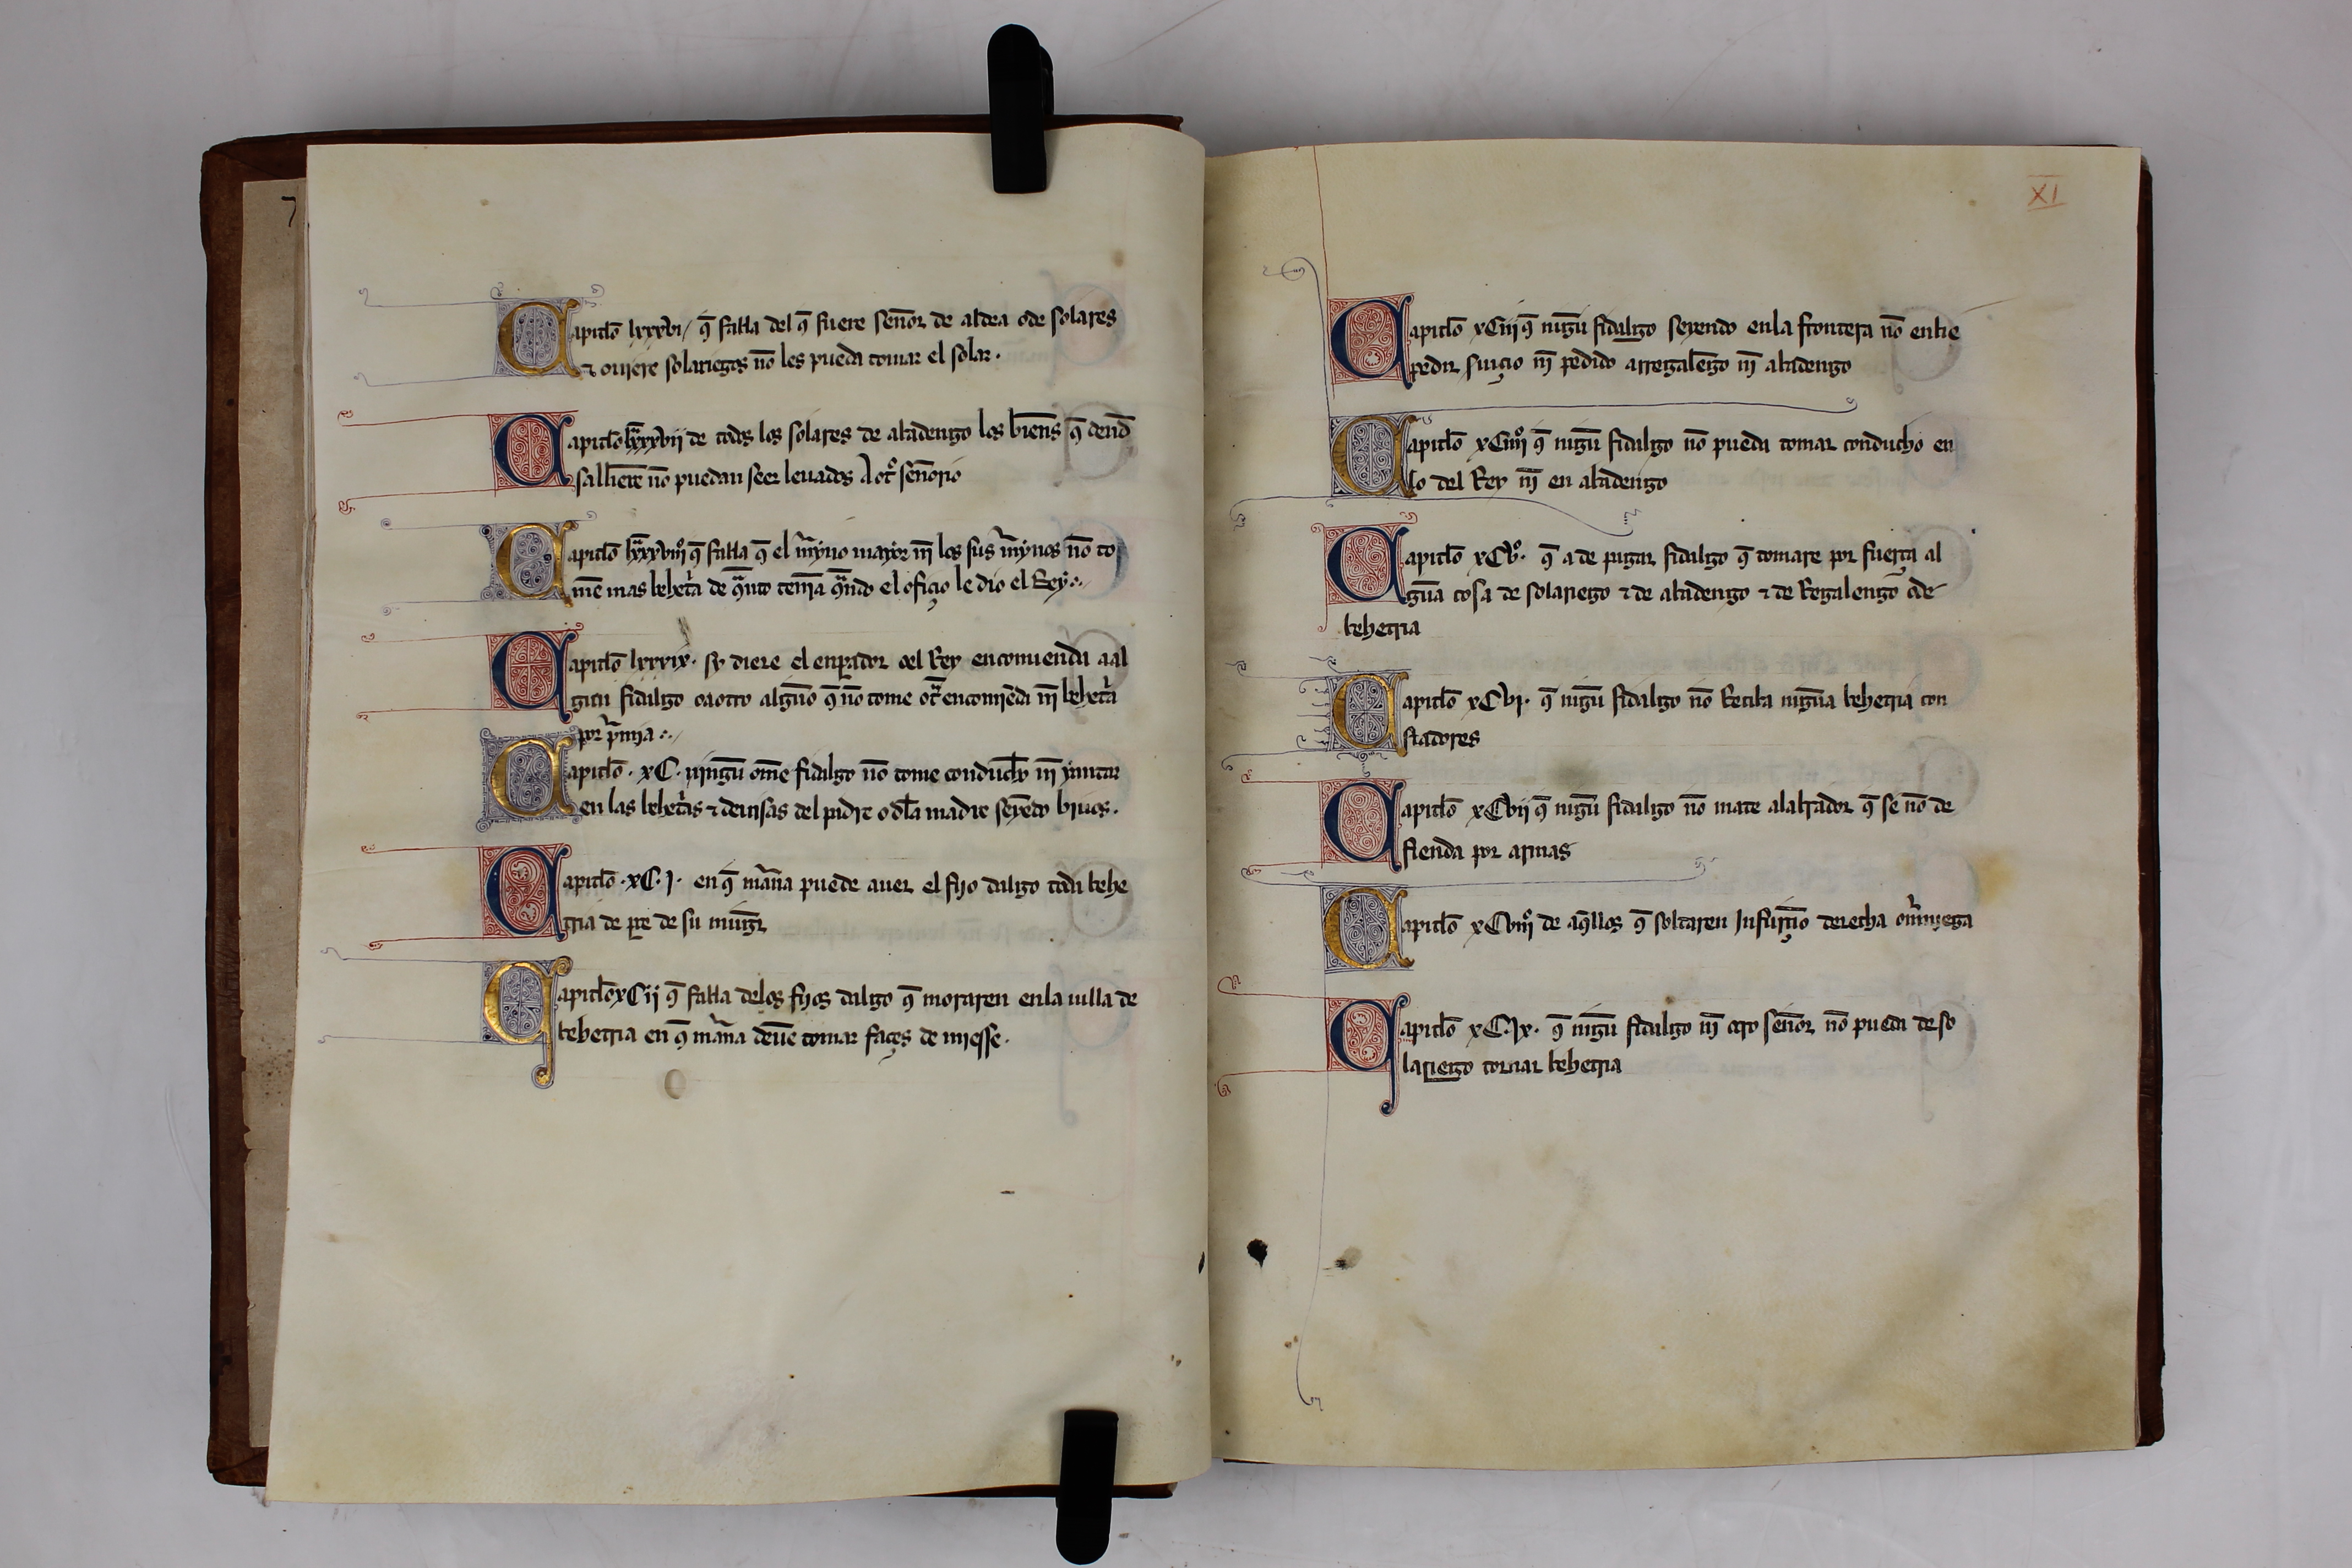 7
Capitĺo lxxxvi q̃ fabla del q̃ fuere señor de aldea o de solares
⁊ ouiere solariegos nõ les pueda tomar el solar.
Capitĺo lxxxvij de todos los solares de abadengo los biẽns q̃ dend
salliẽre nõ puedan seer leuados a otº señorio
Capitĺo lxxxviijº q̃ fabla q̃ el mẽyno mayor nĩ los sus mẽynos nõ to
mẽ mas behetª de q̃nto tenia q̃ndo el ofiçio le dio el Rey
Capitĺo lxxxix. sy diere el enꝑador o el Rey encomienda a al
gun fidalgo o a otro alguno q̃ nõ tome otª encomiẽda nĩ behetª
por pͥmia
Capitĺo . xC . ningũ om̃e fidalgo nõ tome conducho nĩ yantar
en las behetªs ⁊ deuisas del padre o dla madre seyẽdo biuos.
Capitĺo . xC. j. en q̃ mãna puede auer el fijo dalgo toda behe
tria de ꝑte de su mugr̃
Capitĺo xCij q̃ fabla delos fijos dalgo q̃ moraren enla uilla de
behetria en q̃ mãna deuẽ tomar façes de miesse.
XI
Capitĺo xCiij q̃ nigũ fidalgo seyendo enla frontera nõ enbie
pedir ſuiçio nĩ pedido a rregalẽgo nĩ abadengo
Capitĺo xCiiijº q̃ nigũ fidalgo nõ pueda tomar conducho en
lo del Rey nĩ en abadengo
Capitĺo xCvº. q̃ a de pagar fidalgo q̃ tomare por fuerça al
gũa cosa de solariego ⁊ de abadengo ⁊ de Regalengo o de
behetria
Capitĺo xCvj. q̃ nigũ fidalgo nõ Reciba nigũa behetria con
fiadores
Capitĺo xCvij q̃ nigũ fidalgo nõ mate a labrador q̃ se nõ de
fienda por armas
Capitĺo xCviijº de aq̃llos q̃ soltaren Jnfurçiõ derecha o mͣniega
Capitĺo xC. Jx. q̃ nigũ fidalgo nĩ otro señor nõ pueda de so
lariego tornar behetria